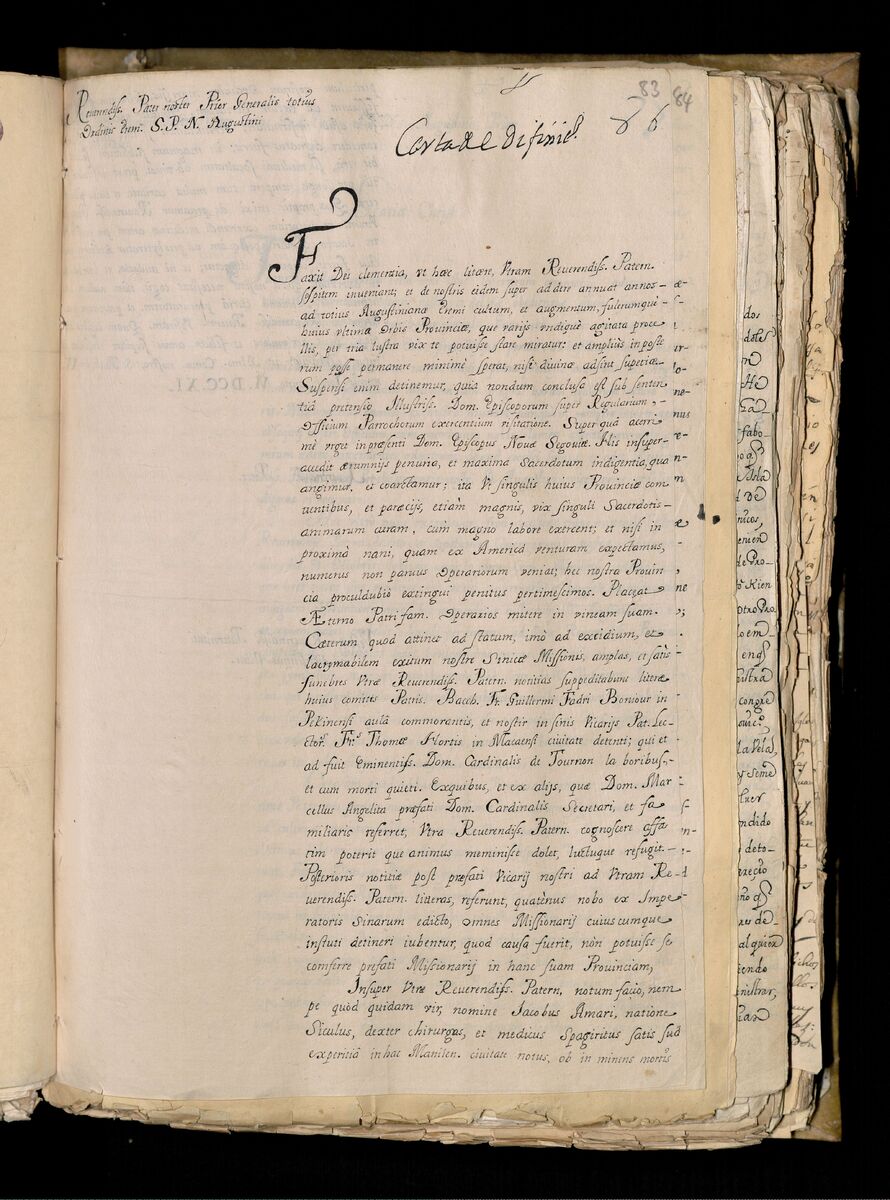 83 84
86
Reverendiss. Pater noster Prior Generalis totius
Ordinis Erem. S. P. N. Augustini
Carta de Difinic.
Faxit Dei clementia, vt hæc litteræ, Vtram Reverendiss. Patern.
sospitem inveniant; et de nostris eidem super addere annuat annos-
ad totius Augustinianæ Eremi cultum, et augmentum, fulcrumque
huius vltimæ Orbis Provinciæ, que varijs vndiquè agitata proce
llis, per tria lustra vix te potuisse stare miratur: et ampliùs in poste
rum posse permanere minimè sperat, nisi divina adsint supetiæ
Suspensi enim detinemur, quià nondum conclusa est sub senten
tiâ pretensio Illustriss. Dom. Episcoporum super Regularium,-
Officium Parrochorum exercentium visitatione. Super quâ acerri
mè vrget in præsenti Dom. Episcopus Novæ Segoviæ. His insuper-
accedit ærumnijs penuria, et maxima Sacerdotum indigentia, qua
angimur, et coarctamur; ita Vt singulis huius Provinciæ con
ventibus, et paræcijs, etiàm magnis, vix singuli Sacerdotis-
animarum curam, cum magno labore exercent; et nisi in
proximâ navi, quam ex Americâ venturam expectamus,
numerus non parvus Operariorum veniat; hec nostra Provin
cia proculdubiò extingui penitus pertimescimos. Placeat
Æterno Patri fam. Operarios mitere in vineam suam.
Cæterum quod attinet ad statum, imò ad excidium, et
lacrymabilem exitum nostre Sinicæ Missionis, amplas, et satis
funebres Vtræ Reverendiss. Patern. notitias suppeditabunt literæ
huius comites Patris. Bacch. Fr. Guillermi Fadri Bonjour in
Pekinensi aulâ commorantis, et nostir in sinis Vicarijs Pat. Lec-
ctor. Fr. Thomæ Hortis in Macaensi civitate detenti; qui et
ad fuit Eminentiss. Dom. Cardinalis de Tournon la boribus,
et cum morti quieti. Exquibus, et ex alijs, quæ Dom. Mar
cellus Angelita præfati Dom. Cardinalis Secretari, et fa
miliaris referret, Vtra Reverendiss. Patern. cognoscere affa
tim poterit que animus meminisse dolet, luctuque refugit.-
Posterioris notitiæ post præfati Vicarij nostri ad Vtram Re
verendiss. Patern. litteras, referunt, quatènus nobo ex Impe
ratoris Sinarum edicto, omnes Missionarij cuiuscumque
instuti detineri iubentur, quod causa fuerit, nòn potuisse se
comferre prefati Missionarij in hanc suam Provinciam,
Insuper Vtræ Reverendiss. Patern. notum facio, nem
pe quòd quidam vir, nomine Jacobus Amari, natione
Siculus, dexter chirurgus, et medicus Spagiritus satis suâ
experitiâ in hac Manilen. civitate notus, ob in minens mortis